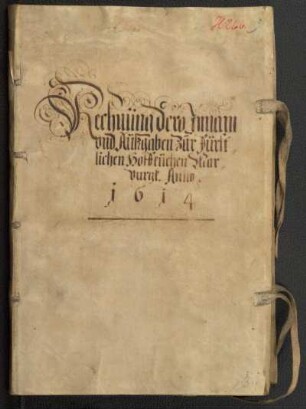 Rechnung dero Innam
vnd Außgaben zur Fürst
lichen Hoffküchen Mar
purgk. Anno
1614